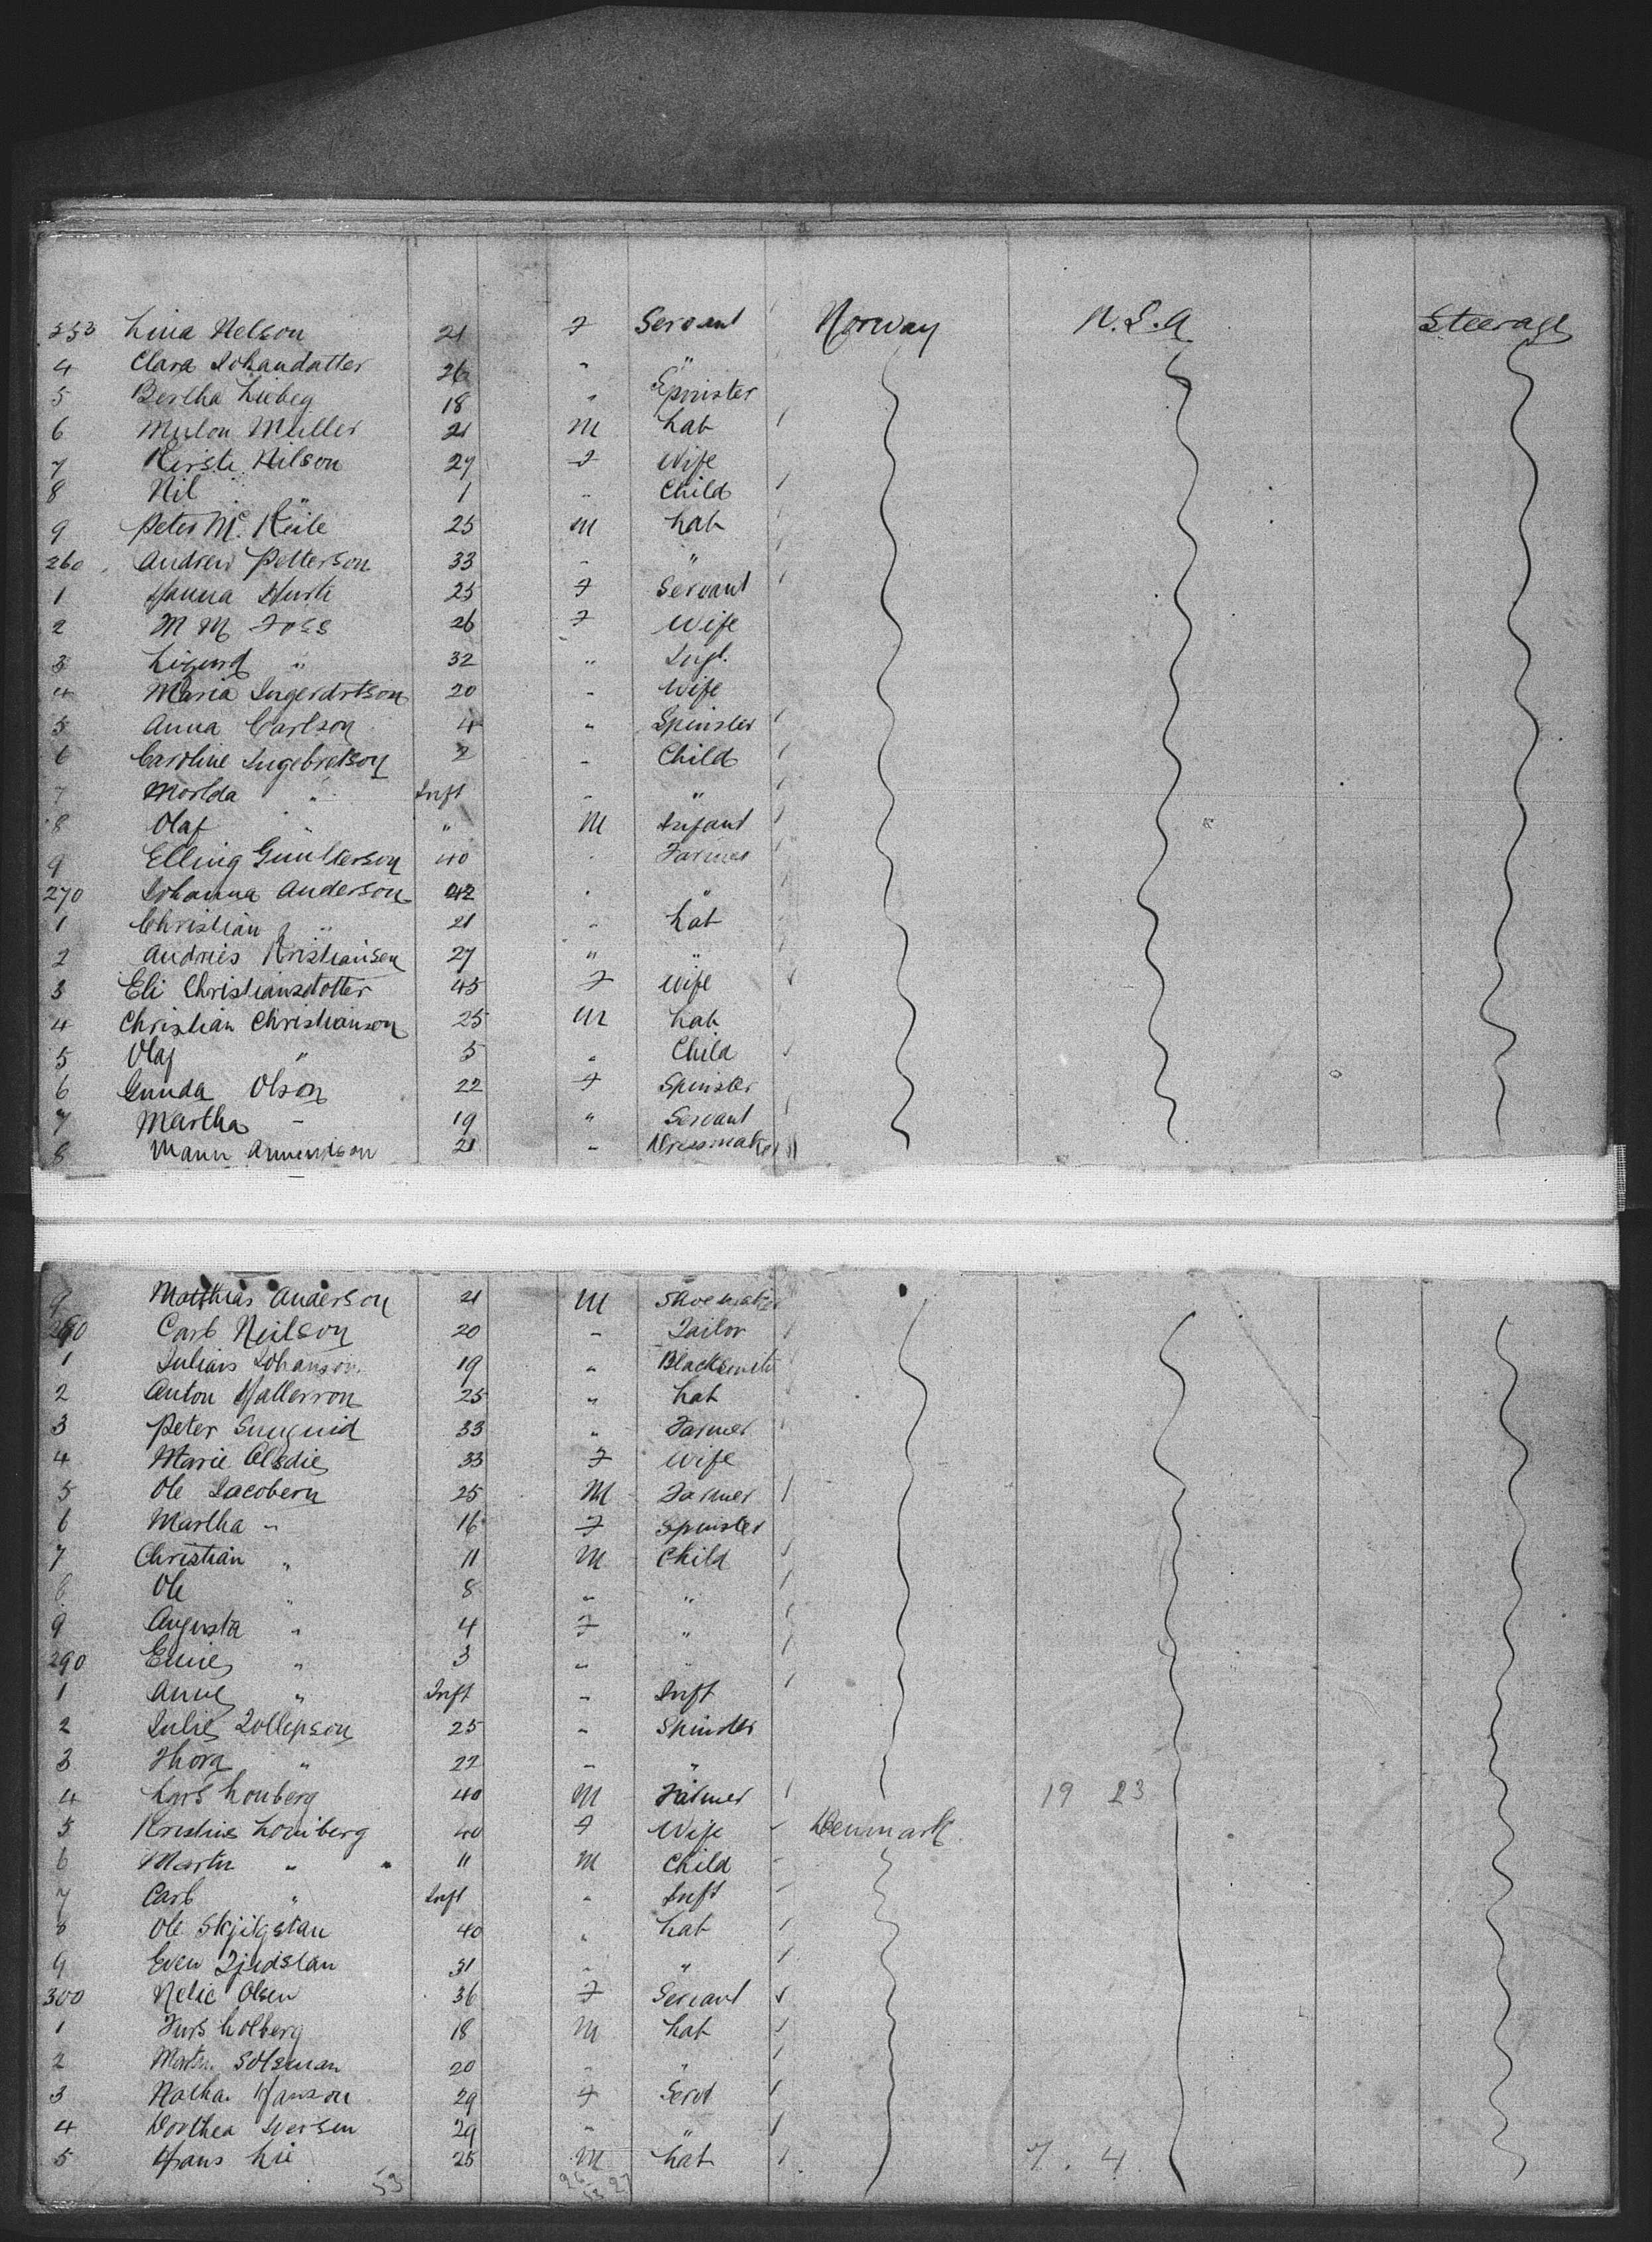 253 Lina Nelson 21 F Servant Norway U.S.A. Steerage
4 Clara Johandatter 26 " "
5 Bertha Lieberg 18 " Spinster
6 Muller 21 M Lab
7 Kirste Nilson 27 F Wife
8 Nil " 1 " Child
9 Peter Mc. 25 M Lab
260 Andrew Petterson 33 " "
1 Hanna 25 F Servant
2 M M Foss 26 F Wife
3 " 32 "
4 Maria 20 " Wife
5 Anna Carlson 4 " Spinster
6 Caroline Ingebretson 2 " Child
7 Morlda " Inft " "
8 Olaf " " M Infant
9 Elling 40 " Farmer
270 Johanna Anderson 42 " "
1 Christian " 21 " Lab
2 Andries Kristiansen 27 " "
3 Eli Christiansdotter 45 F Wife
4 Christian Christianson 25 M Lab
5 Olaf " 5 " Child
6 Gunda Olson 22 F Spinster
7 Martha " 19 " Servant
8 21 " Dressmaker
9 Matthias Anderson 21 M Shoemaker
280 Carl Neilson 20 " Tailor
1 Julians Johanson 19 " Blacksmith
2 Anton 25 " Lab
3 Peter 33 " Farmer
4 Marie 33 F Wife
5 Ole Jacobern 25 M Farmer
6 Martha " 16 F Spinster
7 Christian " 11 M Child
8 Ole " 8 " "
9 Augusta " 4 F "
290 " 3 " "
1 Anne " Inft " Inft
2 Julie Tollepson 25 " Spinster
3 Thora " 22 " "
4 Lars Lonberg 40 M Farmer 19 23
5 Kristine Loniberg 40 F Wife Denmark
6 Martin " 11 M Child
7 Carl " Inft " Inft
8 Ole Skjilgstan 40 " Lab
9 Even 31 " "
300 Nelie Olsen 36 F Servant
1 Holberg 18 M Lab
2 Martin 20 " "
3 Hanson 29 F Servt
4 Dorthea Iversen 29 " "
5 Hans Lie 25 M Lab 7. 4
53